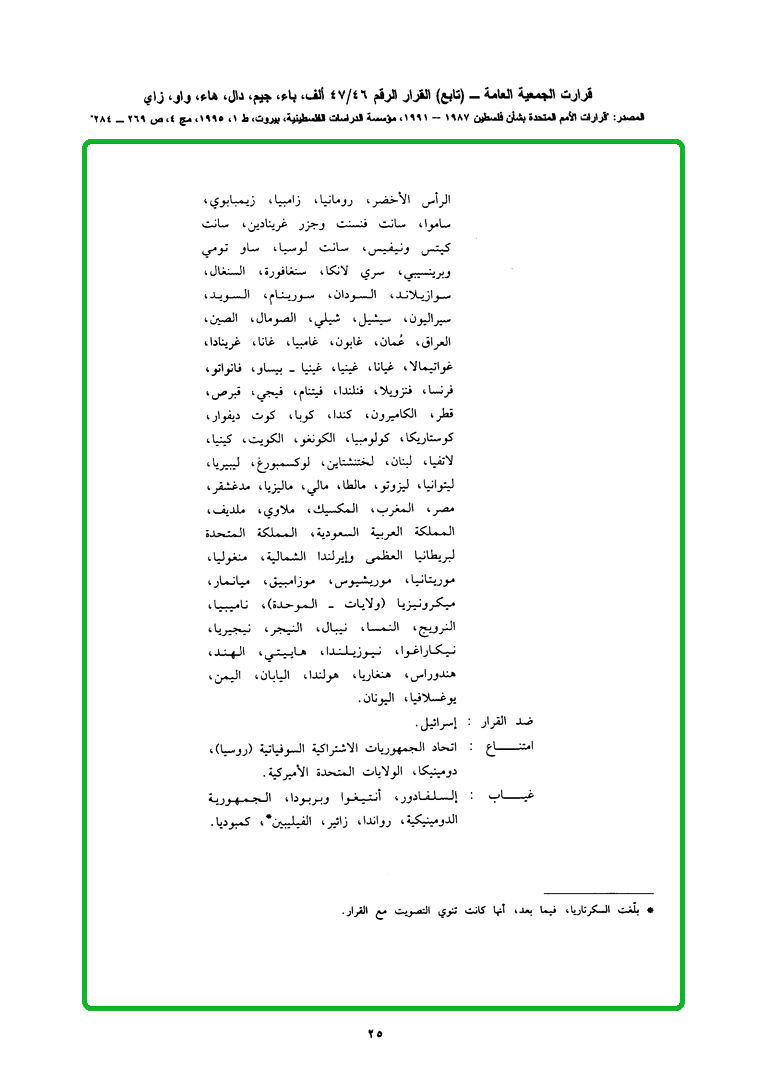 قرارت الجمعية العامة ــ (تابع) القرار الرقم ٤٧/٤٦ ألف، باء، جيم، دال، هاء، واو، زاي
المصدر: "قرارات الأمم المتحدة بشأن فلسطين ١٩٨٧ -- ١٩٩١، مؤسسة الدراسات الفلسطينية، بيروت، ط ١، ١٩٩٥، مج ٤، ص ٢٦٩ ــ ٢٨٤"
الرأس الأخضر، رومانيا، زامبيا، زيمبابوي،
ساموا، سانت فنسنت وجزر غرينادين، سانت
كيتس ونيفيس، سانت لوسيا، ساو تومي
وبرينسيبي، سري لانكا، سنغافورة، السنغال،
سوازيلاند، السودان، سورينام، السويد،
سيراليون، سيشيل، شيلي، الصومال، الصين،
العراق، عُمان، غابون، غامبيا، غانا، غرينادا،
غواتيمالا، غيانا، غينيا، غينيا ـ بيساو، فانواتو،
فرنسا، فنزويلا، فنلندا، فيتنام، فيجي، قبرص،
قطر، الكاميرون، كندا، كوبا، كوت ديفوار،
كوستاريكا، كولومبيا، الكونغو، الكويت، كينيا،
لاتفيا، لبنان، لختنشتاين، لوكسمبورغ، ليبيريا،
ليتوانيا، ليزوتو، مالطا، مالي، ماليزيا، مدغشقر،
مصر، المغرب، المكسيك، ملاوي، ملديف،
المملكة العربية السعودية، المملكة المتحدة
لبريطانيا العظمى وإيرلندا الشمالية، منغوليا،
موريتانيا، موريشيوس، موزامبيق، ميانمار،
ميكرونيزيا (ولايات ـ الموحدة)، ناميبيا،
النرويج، النمسا، نيبال، النيجر، نيجيريا،
نيكاراغوا، نيوزيلندا، هاييتي، الهند،
هندوراس، هنغاريا، هولندا، اليابان، اليمن،
يوغسلافيا، اليونان.
ضد القرار : إسرائيل.
امتنـــــاع : اتحاد الجمهوريات الاشتراكية السوفياتية (روسيا)،
دومينيكا، الولايات المتحدة الأميركية.
غيـــــاب : إلسلفادور، أنتيغوا وبربودا، الجمهورية
الدومينيكية، رواندا، زائير، الفيليبين*، كمبوديا.
* بلّغت السكرتاريا، فيما بعد، أنها كانت تنوي التصويت مع القرار.
٢٥